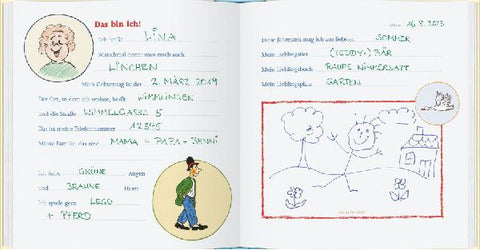 Das bin ich!
Ich heiße LINA
Manchmal nennt man mich auch
LINCHEN
Mein Geburtstag ist der 2. MÄRZ 2019
Der Ort, in dem ich wohne, heißt WIMMLINGEN
und die Straße WIMMELGASSE 5
Das ist meine Telefonnummer 12345
Meine Familie, das sind MAMA + PAPA + BENNI
Ich habe GRÜNE Augen
und BRAUNE Haare
Ich spiele gern LEGO
+ PFERD
16.8.2023
Diese Jahreszeit mag ich am liebsten SOMMER
Mein Lieblingstier (TEDDY-) BÄR
Mein Lieblingsbuch RAUPE NIMMERSATT
Mein Lieblingsplatz GARTEN